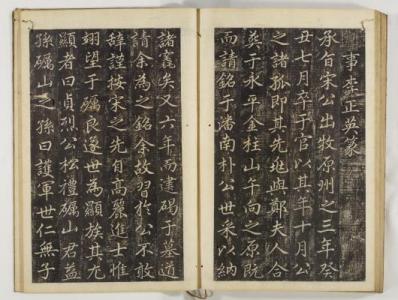 事李正英篆
承旨宋公出牧原州之三年癸
丑七月卒于官以其年十月公
之諸孤即其先兆與鄭夫人合
葬于永平金柱山午向之原既
而請銘于潘南朴公世采以納
諸竁矣又六年而建碣于墓道
請余為之銘余故習於公不敢
辭謹按宋之先自高麗進士惟
翊望于礪良遂世為顯族其尤
顯者曰貞烈公松禮礪山君益
孫礪山之孫曰護軍世仁無子